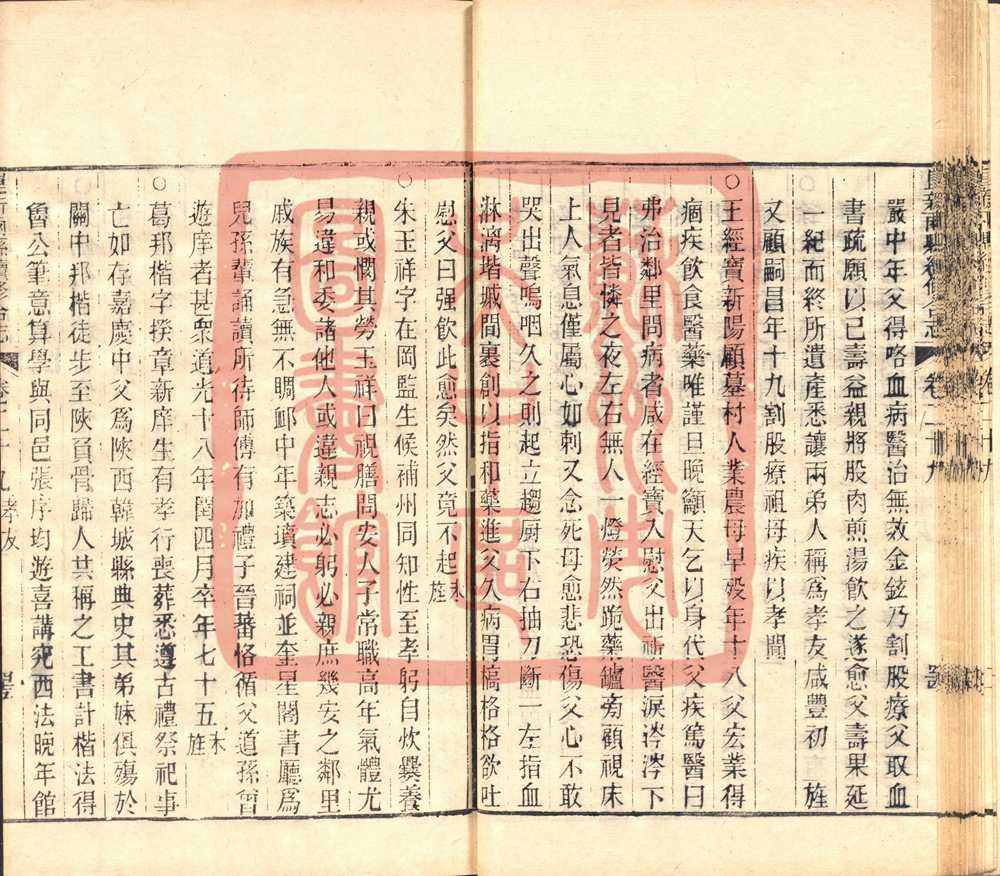 崑新兩縣續修合志 卷二十九
嚴中年父得咯血病醫治無效金鉉乃割股療父取血
書疏願以己壽益親將股肉煎湯飲之遂愈父壽果延
一紀而終所遺產悉讓兩弟人稱爲孝友咸豐初 旌
又顧嗣昌年十九割股療祖母疾以孝聞
○王經寶新陽顧墓村人業農母早歿年十八父宏業得
痼疾飲食醫藥唯謹旦晚籲天乞以身代父疾篤醫曰
弗治鄰里問病者咸在經寶入慰父出祈醫淚涔涔下
見者皆憐之夜左右無人一燈熒然跪藥鑪旁顧視床
上人氣息僅屬心如刺又念死母愈悲恐傷父心不敢
哭出聲嗚咽久之則起立趨厨下右抽刀斷一左指血
淋漓堦戚間裏創以指和藥進父久病胃槁格格欲吐
慰父曰强飲此愈矣然父竟不起未旌
○朱玉祥字在岡監生候補州同知性至孝躬自炊爨養
親或憫其勞玉祥曰視膳問安人子常職高年氣體尤
易違和委諸他人或違親志必躬必親庶幾安之鄰里
戚族有急無不賙䘏中年築墳建祠並奎星閣書廳爲
兒孫輩誦讀所待師傅有加禮子晉蕃恪循父道孫曾
遊庠者甚衆道光十八年閏四月卒年七十五未旌
○葛邦楷字揆章新庠生有孝行喪葬悉遵古禮祭祀事
亡如存嘉慶中父爲陝西韓城縣典史其弟妹俱殤於
關中邦楷徒步至陝負骨歸人共稱之工書計楷法得
魯公筆意算學與同邑張序均遊喜講究西法晚年館
崑新兩縣續修合志 卷二十九 孝友